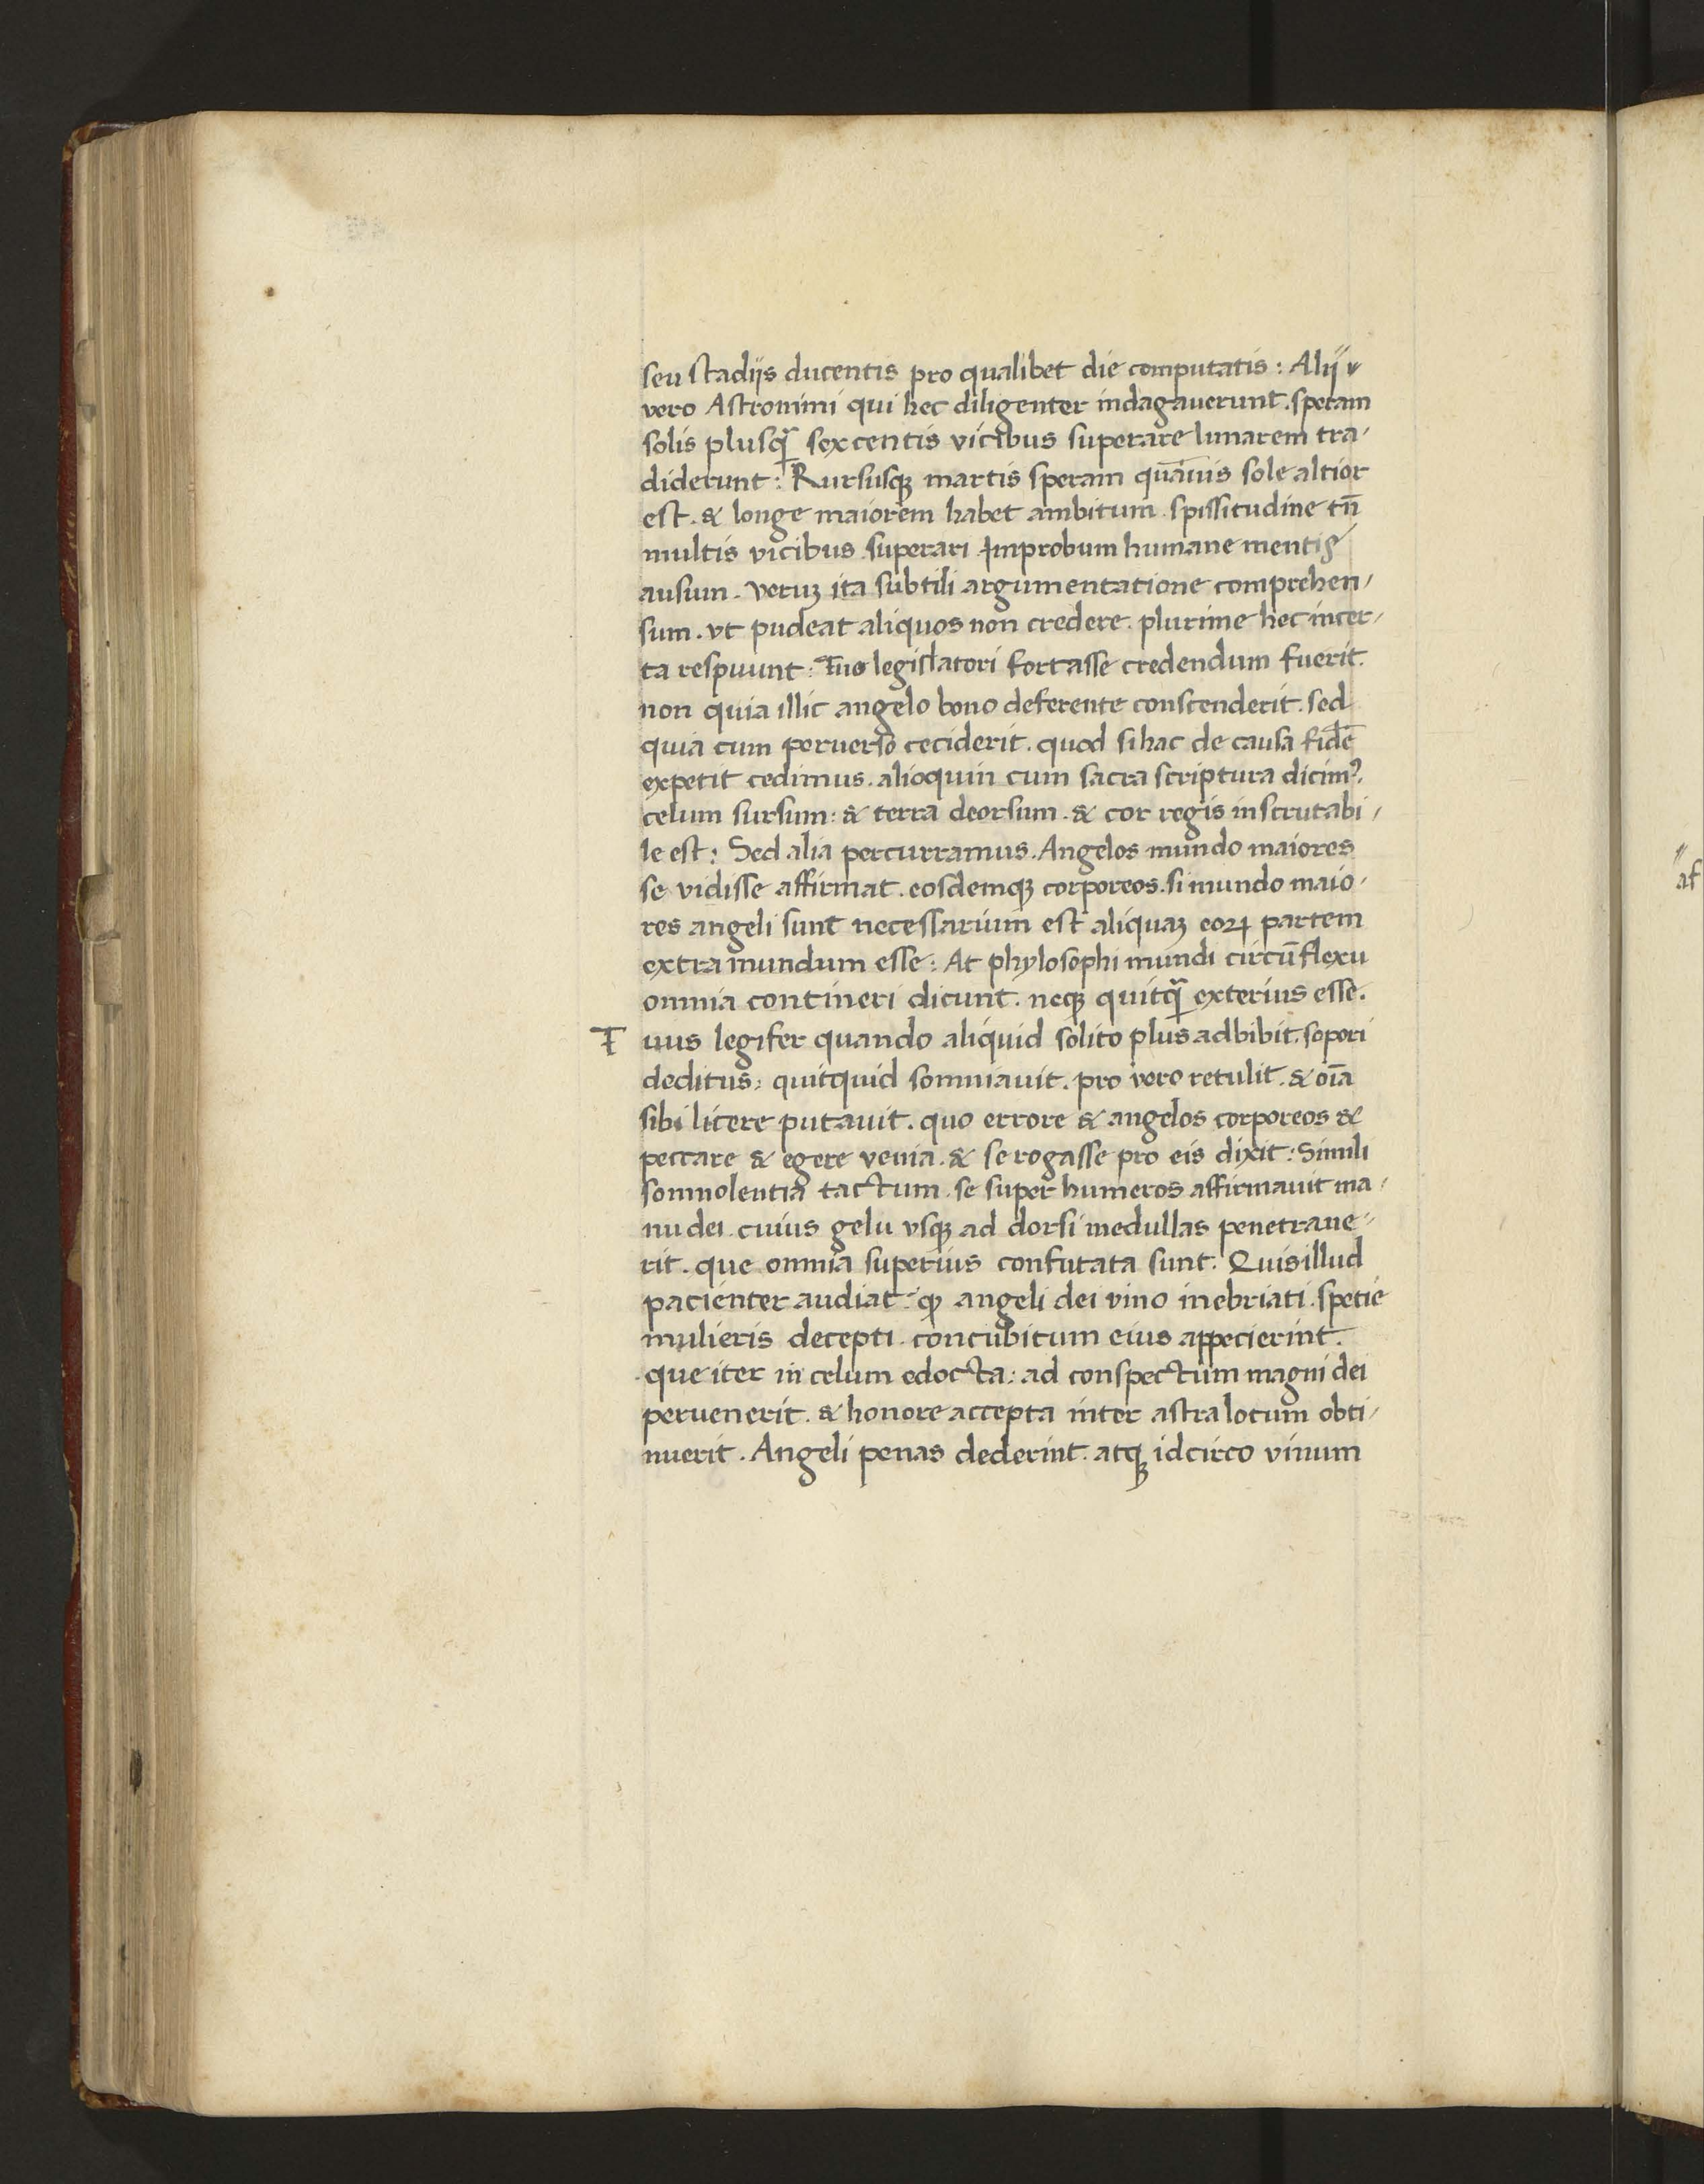 seu stadijs ducentis pro qualibet die computatis : Alij v
vero Astronimi qui hec diligenter indagauerunt. speram
solis plusqꝫ̄ sexcentis vicibus superare lunarem tra-
diderunt : Rursusqꝫ martis speram quāuis sole altior
est. & longe maiorem habet ambitum. spissitudine tn̄
multis vicibus superari. Improbum humane mentis
ausum. veruꝫ ita subtili argumentatione comprehen-
sum. vt pudeat aliquos non credere. plurime hec incer-
ta respuunt : Tuo legislatori fortasse credendum fuerit.
non quia illic angelo bono deferente conscenderit. sed
quia cum peruerso ceciderit. quod si hac de causa fidē
expetit cedimus. alioquin cum sacra scriptura dicimꝰ.
celum sursum : & terra deorsum. & cor regis inscrutabi-
le est : Sed alia percurramus. Angelos mundo maiores
se vidisse affirmat. eosdemqꝫ corporeos. si mundo maio-
res angeli sunt necessarium est aliquaꝫ eoꝝ partem
extra mundum esse : At phylosophi mundi circūflexu
omnia contineri dicunt. neqꝫ quitqꝫ̄ exterius esse.
T uus legifer quando aliquid solito plus adbibit. sopori
deditus : quitquid somniauit. pro vero retulit. & oīa
sibi licere putauit. quo errore & angelos corporeos &
peccare & egere venia. & se rogasse pro eis dixit : Simili
somnolentia tactum se super humeros affirmauit ma-
nu dei. cuius gelu vsqꝫ ad dorsi medullas penetraue-
rit. que omnia superius confutata sunt. Quis illud
pacienter audiat. ꝙ angeli dei vino inebriati. spetie
mulieris decepti. concubitum eius appecierint.
que iter in celum edocta : ad conspectum magni dei
peruenerit. & honore accepta inter astra locum obti-
nuerit. Angeli penas dederint. atqꝫ idcirco vinum
af